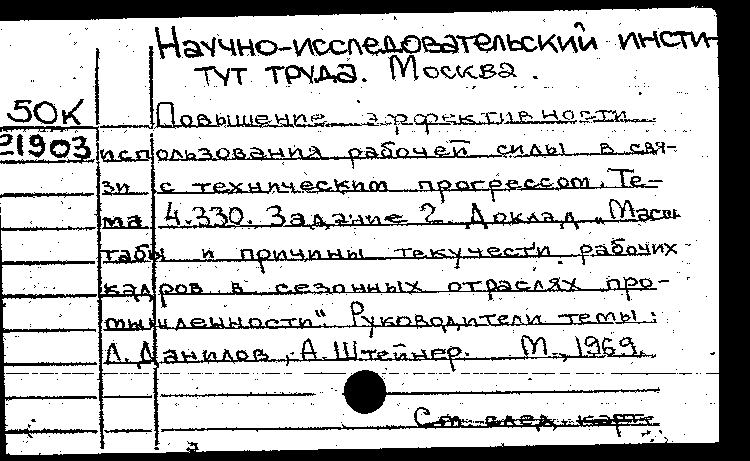 Научно-исследовательский инсти-
тут труда. Москва.
50К Повышение эффективности
21903 использования рабочей силы в свя-
зи с техническим прогрессом. Те-
ма 4.330. Задание 2. Доклад „Масш-
табы и причины текучести рабочих
кадров в сезонных отраслях про-
мышленности". Руководители темы:
Л. Данилов, А. Штейнер. М., 1969.
См след. карт.